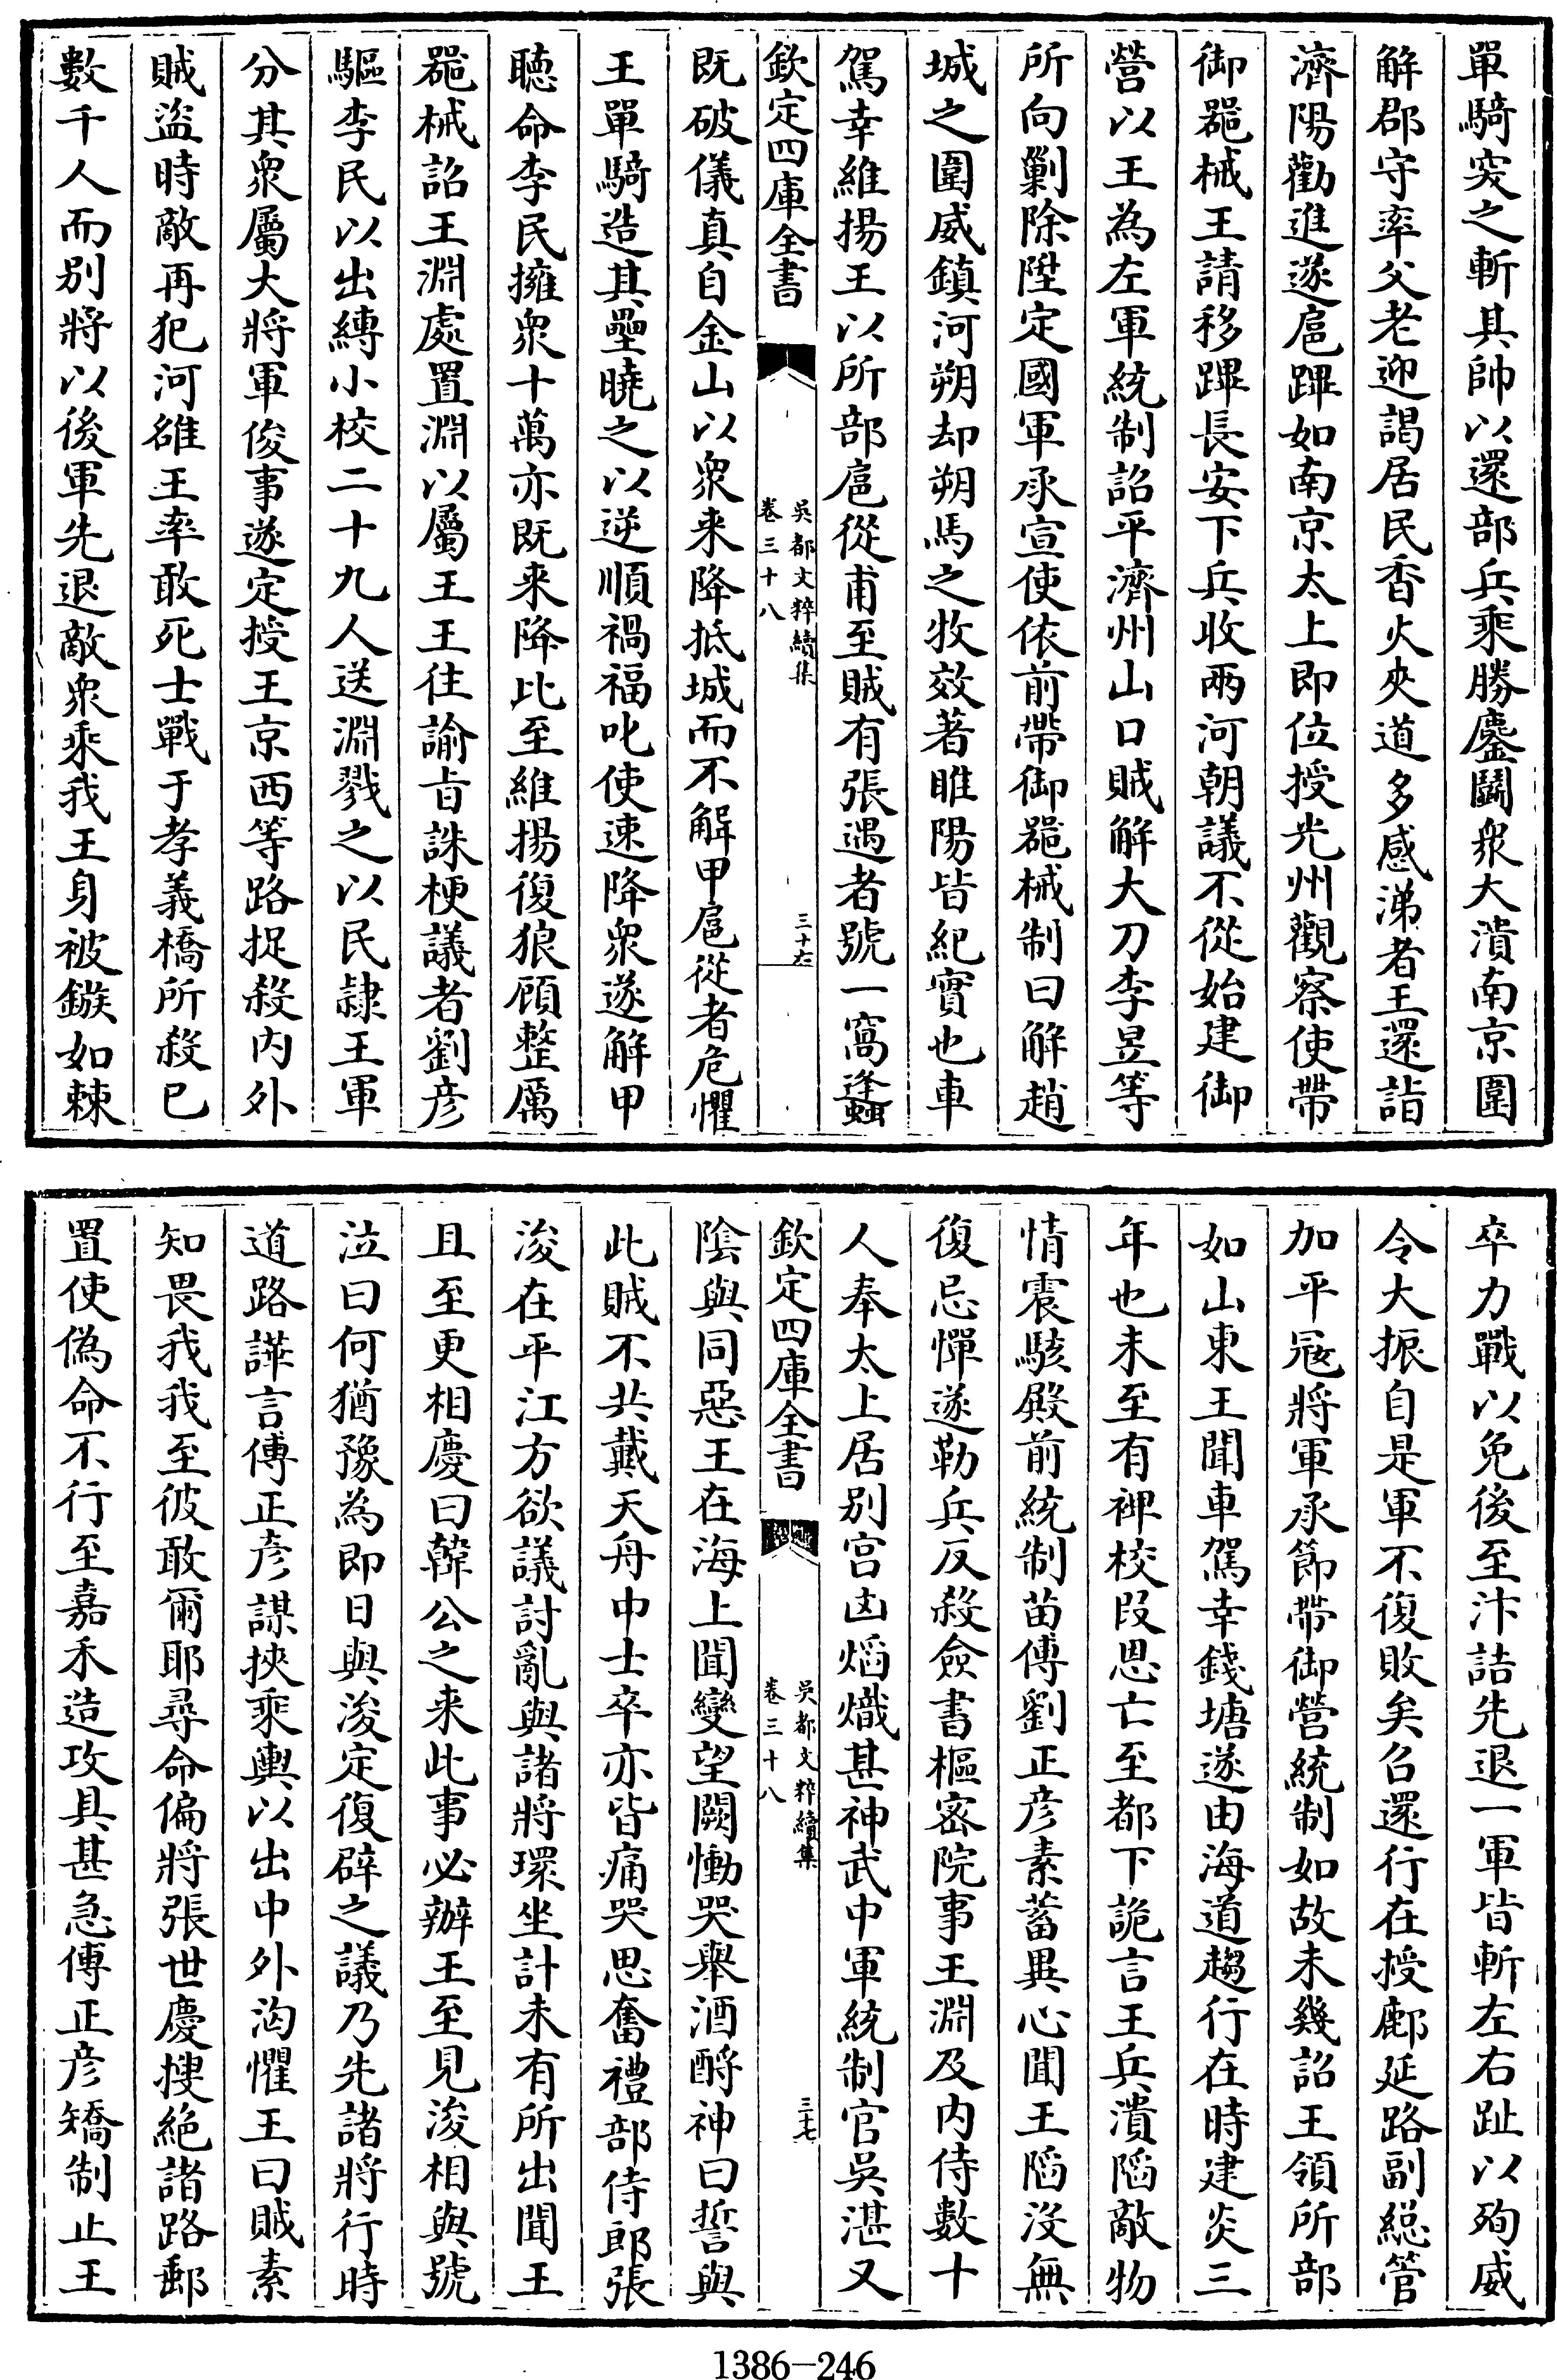 單騎突之斬其帥以還部兵乘勝鏖鬭衆大潰南京圍
解郡守率父老迎謁居民香火夾道多感涕者王還詣
濟陽勸進遂扈蹕如南京太上即位授光州觀察使帶
御器械王請移蹕長安下兵收兩河朝議不從始建御
營以王為左軍統制詔平濟州山口賊解大刀李昱等
所向剿除陞定國軍承宣使依前帶御器械制曰解趙
城之圍威鎮河朔却朔馬之牧效著睢陽皆紀實也車
駕幸維揚王以所部扈從甫至賊有張遇者號一窩蜂
欽定四庫全書
吳都文粹續集
卷三十八
三十六
既破儀真自金山以衆来降抵城而不解甲扈從者危懼
王單騎造其壘曉之以逆順禍福叱使速降衆遂解甲
聽命李民擁衆十萬亦既来降比至維揚復狼顧整厲
器械詔王淵處置淵以屬王王往諭旨誅梗議者劉彥
驅李民以出縛小校二十九人送淵戮之以民隷王軍
分其衆屬大將軍俊事遂定授王京西等路捉殺内外
賊盜時敵再犯河雒王率敢死士戰于孝義橋所殺已
數千人而别將以後軍先退敵衆乘我王身被鏃如棘
卒力戰以免後至汴詰先退一軍皆斬左右趾以殉威
令大振自是軍不復敗矣召還行在授鄜延路副總管
加平寇將軍承節帶御營統制如故未幾詔王領所部
如山東王聞車駕幸錢塘遂由海道趨行在時建炎三
年也未至有裨校段恩亡至都下詭言王兵潰陷敵物
情震駭殿前統制苗傅劉正彥素蓄異心聞王陷沒無
復忌憚遂勒兵反殺僉書樞宻院事王淵及内侍數十
人奉太上居别宮凶熖熾甚神武中軍統制官吳湛又
欽定四庫全書
吳都文粹續集
卷三十八
三十七
陰與同惡王在海上聞變望闕慟哭舉酒酹神曰誓與
此賊不共戴天舟中士卒亦皆痛哭思奮禮部侍郎張
浚在平江方欲議討亂與諸將環坐計未有所出聞王
且至更相慶曰韓公之来此事必辦王至見浚相與號
泣曰何猶豫為即日與浚定復辟之議乃先諸將行時
道路譁言傅正彥謀挾乘輿以出中外洶懼王曰賊素
知畏我我至彼敢爾耶尋命偏將張世慶搜絕諸路郵
置使偽命不行至嘉禾造攻具甚急傅正彥矯制止王
1386-246